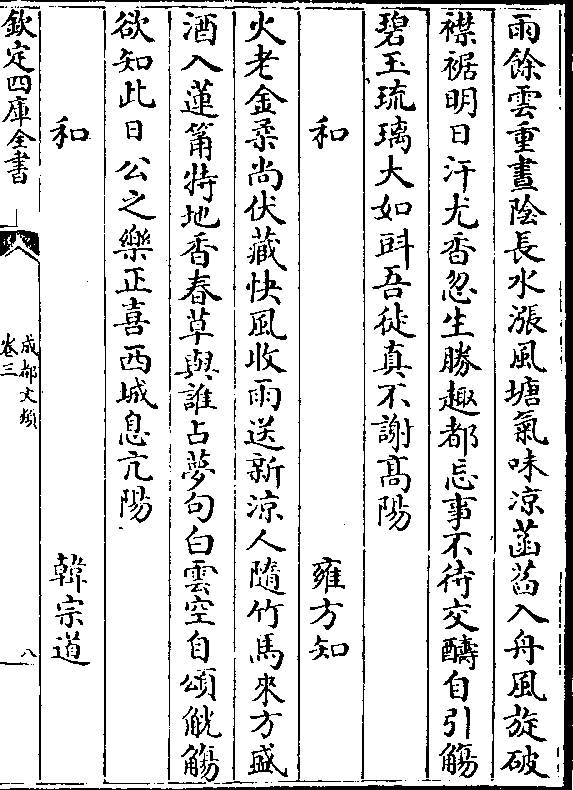 雨餘雲重晝陰長水漲風塘氣味凉菡萏入舟風旋破
襟裾明日汗尤香忽生勝趣都忘事不待交醻自引觴
碧玉琉璃大如斝吾徒真不謝髙陽
和　雍方知
火老金柔尚伏藏快風收雨送新凉人隨竹馬來方盛
酒入蓮筩特地香春草與誰占夢句白雲空自頌觥觴
欲知此日公之樂正喜西城息亢陽
和　韓宗道
欽定四庫全書
成都文類
卷三
八